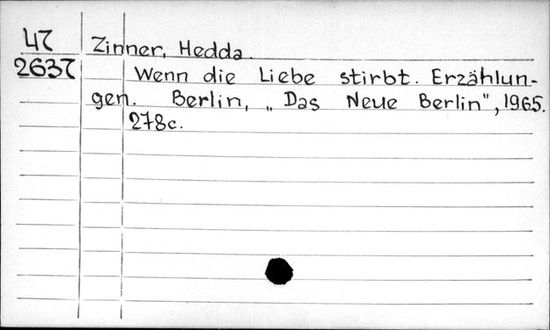 47
2637
Zinner, Hedda.
Wenn die Liebe stirbt. Erzählun-
gen. Berlin, „Das Neue Berlin", 1965.
278c.